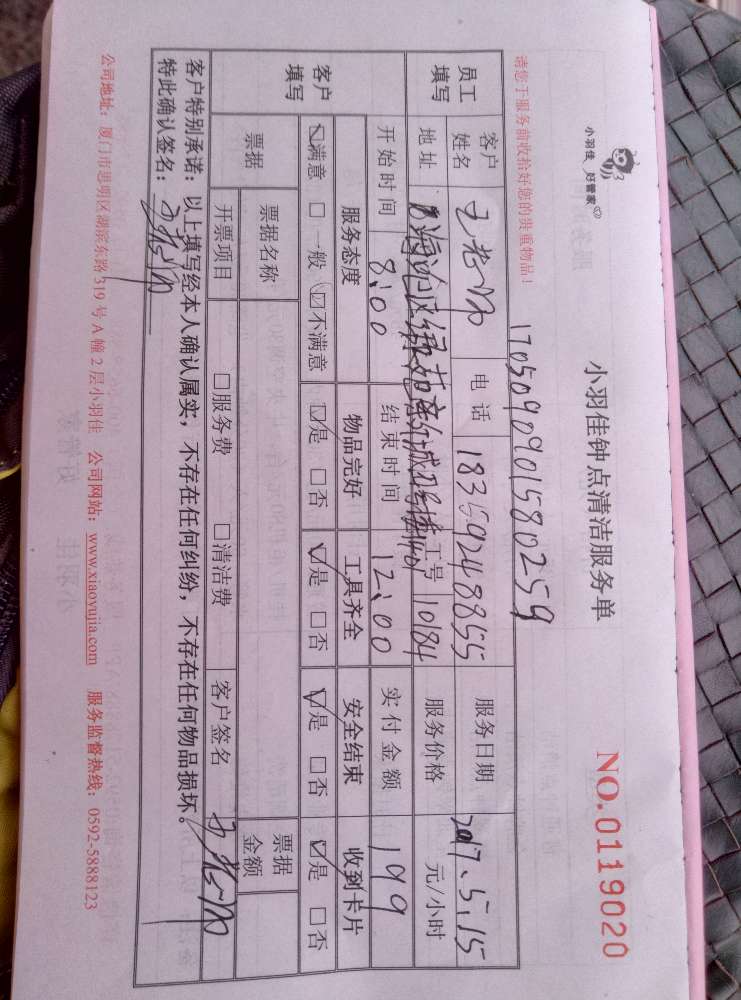 小羽佳 好管家
小羽佳钟点清洁服务单
NO.0119020
请您于服务前收拾好您的贵重物品！
1705090901580259
员工填写 客户姓名 电话 18359248855 服务日期 2017.5.15
地址 工号 10184 服务价格 元/小时
开始时间 8:00 结束时间 12:00 实付金额 199
客户填写 服务态度 物品完好 工具齐全 安全结束 收到卡片
☑满意 □一般 ☑不满意 ☑是 □否 ☑是 □否 ☑是 □否 ☑是 □否
票据 票据名称 票据金额
开票项目 □服务费 □清洁费 客户签名
客户特别承诺：以上填写经本人确认属实，不存在任何纠纷，不存在任何物品损坏。
特此确认签名：
公司地址：厦门市思明区湖滨东路319号A幢2层小羽佳 公司网站：www.xiaoyujia.com 服务监督热线：0592-5888123